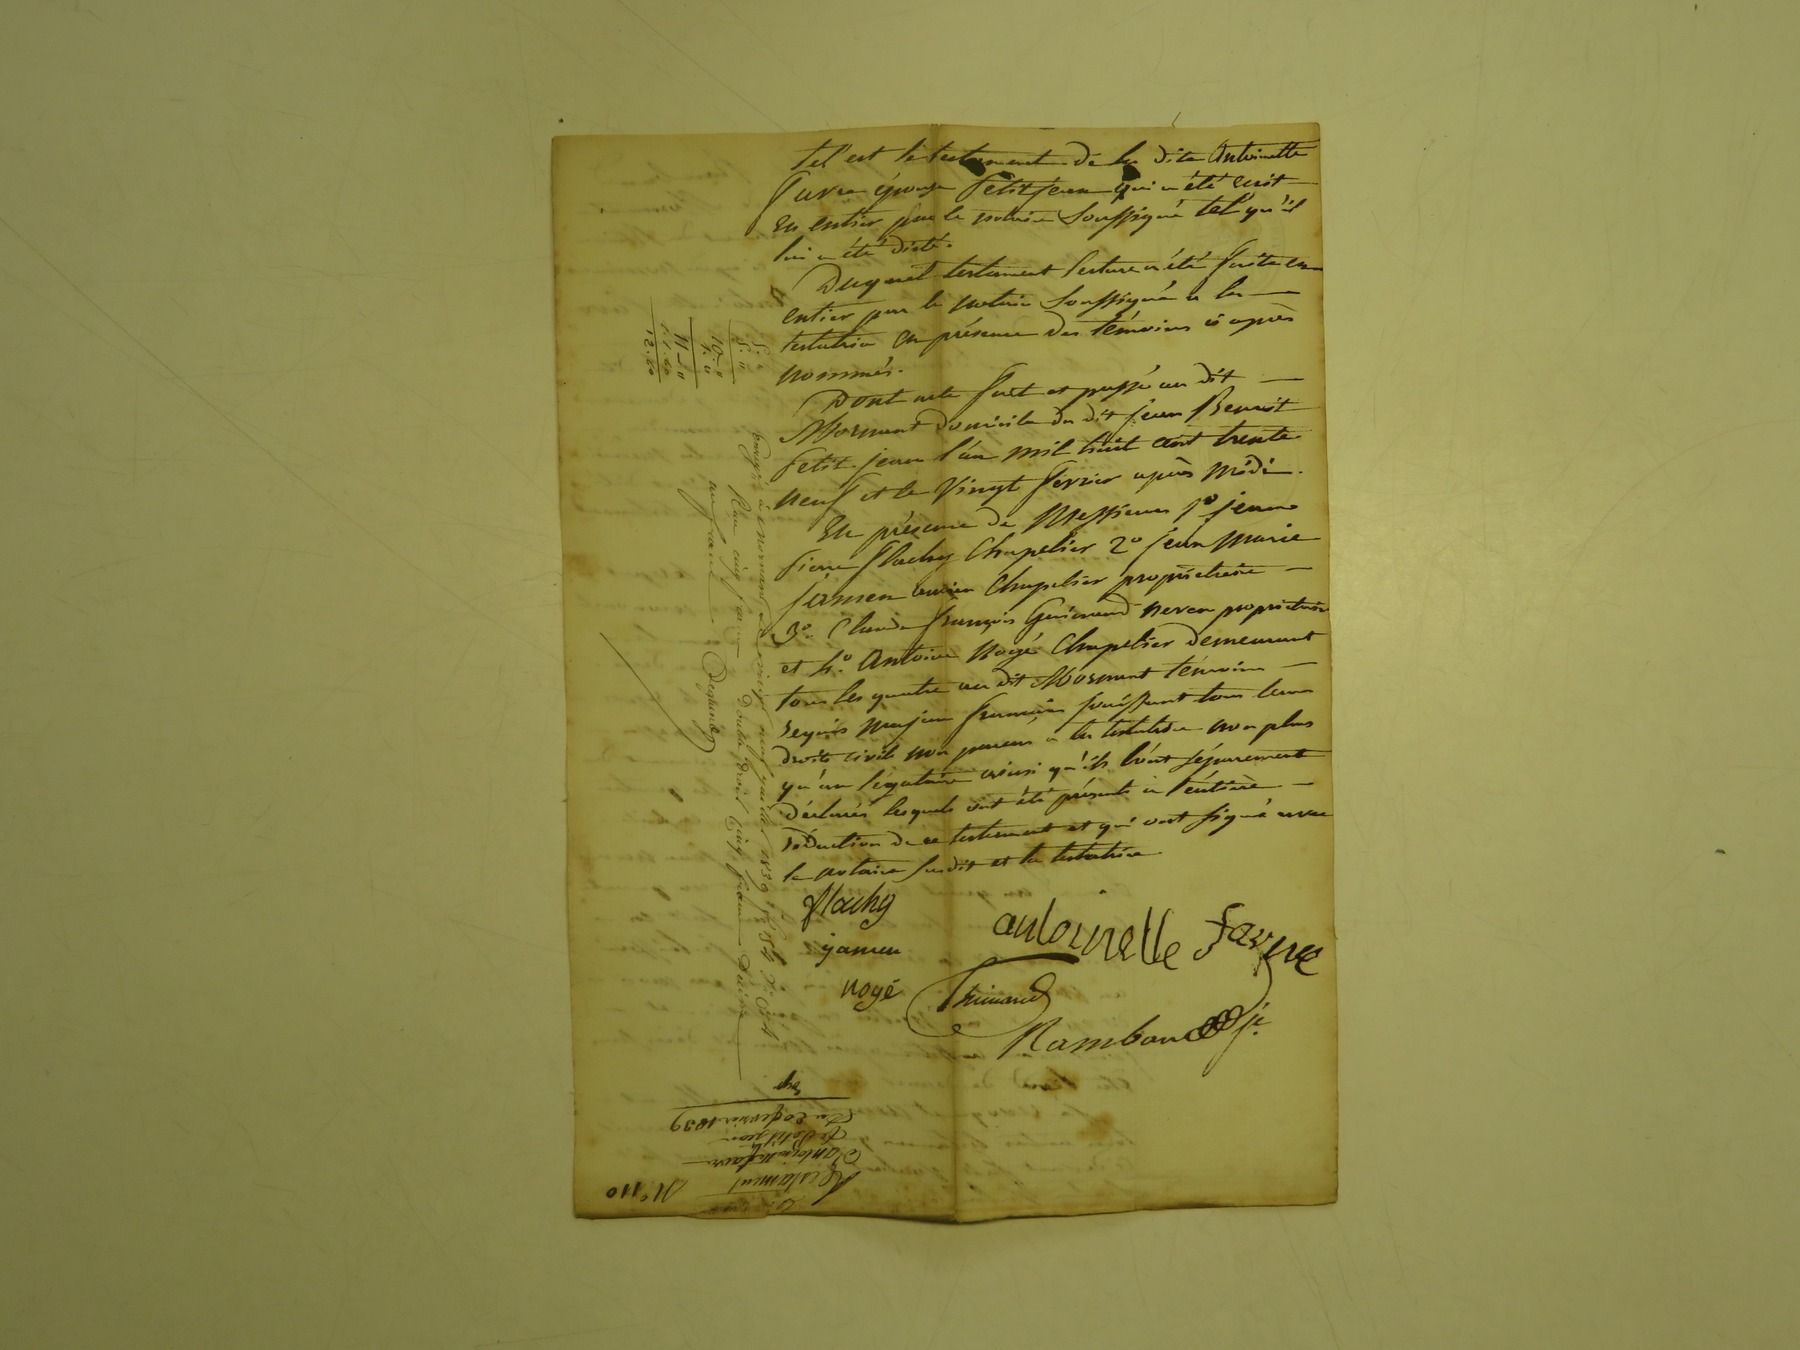 Tel est le testament de la dite Antoinette
favre épouse Petitjean qui a été écrit
en entier par le notaire Soussigné tel qu'il
lui a été dicté.
Duquel testament lecture a été faite en
entier par le notaire Soussigné a la
testatrice en présence des témoins ci après
nommés.
Dont acte fait et passé au dit
Mornant domicile du dit jean Benoit
Petit-jean l'an mil huit cent trente
neuf et le vingt fevrier après midi.
En présence de Messieurs 1º jean
Pierre flachy Chapelier 2º jean Marie
jamen ancien Chapelier propriétaire
3º Claude françois Guinand neveu propriétaire
et 4º Antoine Nogé Chapelier demeurant
tous les quatre au dit Mornant témoins
requis majeurs français jouissant tous leurs
droits civils non parens a la testatrice non plus
qu'au légataire ainsi qu'ils l'ont séparement
déclarés lesquels ont été présents a l'entière
rédaction de ce testement et qui ont signé avec
le notaire susdit et la testatrice
flachy
antoinette favre
jamen
nogé
Guinand
Rambaud je
5. "
5. "
10 - "
1. "
11 - "
1.10
12.10
enregistré à mornant le vingt neuf 1839
Reçu cinq francs double droit cinq francs décime
un franc
Nº 110
Testament
d'antoinette favre
fe Petitjean
Du 20 fevrier 1839